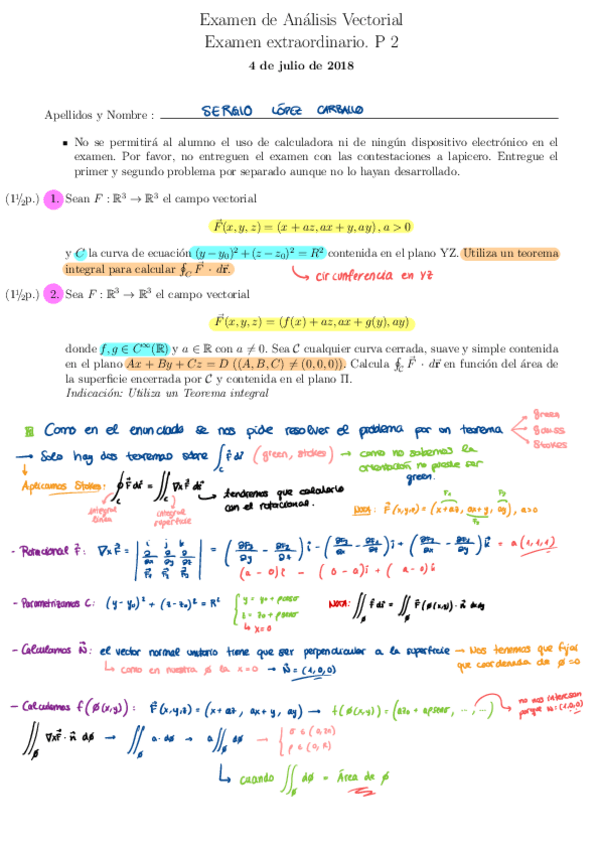 Examen de Análisis Vectorial
Examen extraordinario. P 2
4 de julio de 2018
Apellidos y Nombre : SERGIO LÓPEZ CARBALLO
▪ No se permitirá al alumno el uso de calculadora ni de ningún dispositivo electrónico en el
examen. Por favor, no entreguen el examen con las contestaciones a lapicero. Entregue el
primer y segundo problema por separado aunque no lo hayan desarrollado.
(1½p.) 1. Sean F : ℝ³ → ℝ³ el campo vectorial
F⃗(x, y, z) = (x + az, ax + y, ay) , a > 0
y C la curva de ecuación (y − y₀)² + (z − z₀)² = R² contenida en el plano YZ. Utiliza un teorema
integral para calcular ∮_C F⃗ · dr⃗.
↳ circunferencia en YZ
(1½p.) 2. Sea F : ℝ³ → ℝ³ el campo vectorial
F⃗(x, y, z) = (f(x) + az, ax + g(y), ay)
donde f, g ∈ C^∞(ℝ) y a ∈ ℝ con a ≠ 0. Sea C cualquier curva cerrada, suave y simple contenida
en el plano Ax + By + Cz = D ((A, B, C) ≠ (0, 0, 0)). Calcula ∮_C F⃗ · dr⃗ en función del área de
la superficie encerrada por C y contenida en el plano Π.
Indicación: Utiliza un Teorema integral
Como en el enunciado se nos pide resolver el problema por un teorema green gauss stokes
→ Solo hay dos teoremas sobre ∫_C F⃗ dr⃗ (green, stokes) → como no sabemos la
orientación no puede ser
green.
Aplicamos Stokes: ∮_C F⃗ dr⃗ = ∬ ∇xF⃗ dr⃗ → tendremos que calcularlo
con el rotacional.
integral línea
integral superficie
NOTA: F⃗(x,y,z) = (x+az, ax+y, ay), a>0
- Rotacional F⃗: ∇xF⃗ = | i j k | = (∂F₃/∂y − ∂F₂/∂z) i − (∂F₃/∂x − ∂F₁/∂z) j + (∂F₂/∂x − ∂F₁/∂y) k⃗ = a(1,1,1)
(a − 0)i − (0 − a)j + (a − 0)k
- Parametrizamos C: (y-y₀)² + (z-z₀)² = R²
x = 0
- Calculamos N⃗: el vector normal unitario tiene que ser perpendicular a la superficie → Nos tenemos que fijar
que coordenada de ø = 0
↳ como en nuestra ø la x=0 → N⃗ = (1,0,0)
- Calculamos f(ø(x,y)): F⃗(x,y,z) = (x+az, ax+y, ay) →
no nos interesan
porque N: (1,0,0)
∬_ø ∇xF⃗ · n⃗ dø → ∬_ø a · dø → a ∬_ø dø →
↳ cuando ∬_ø dø = Área de ø